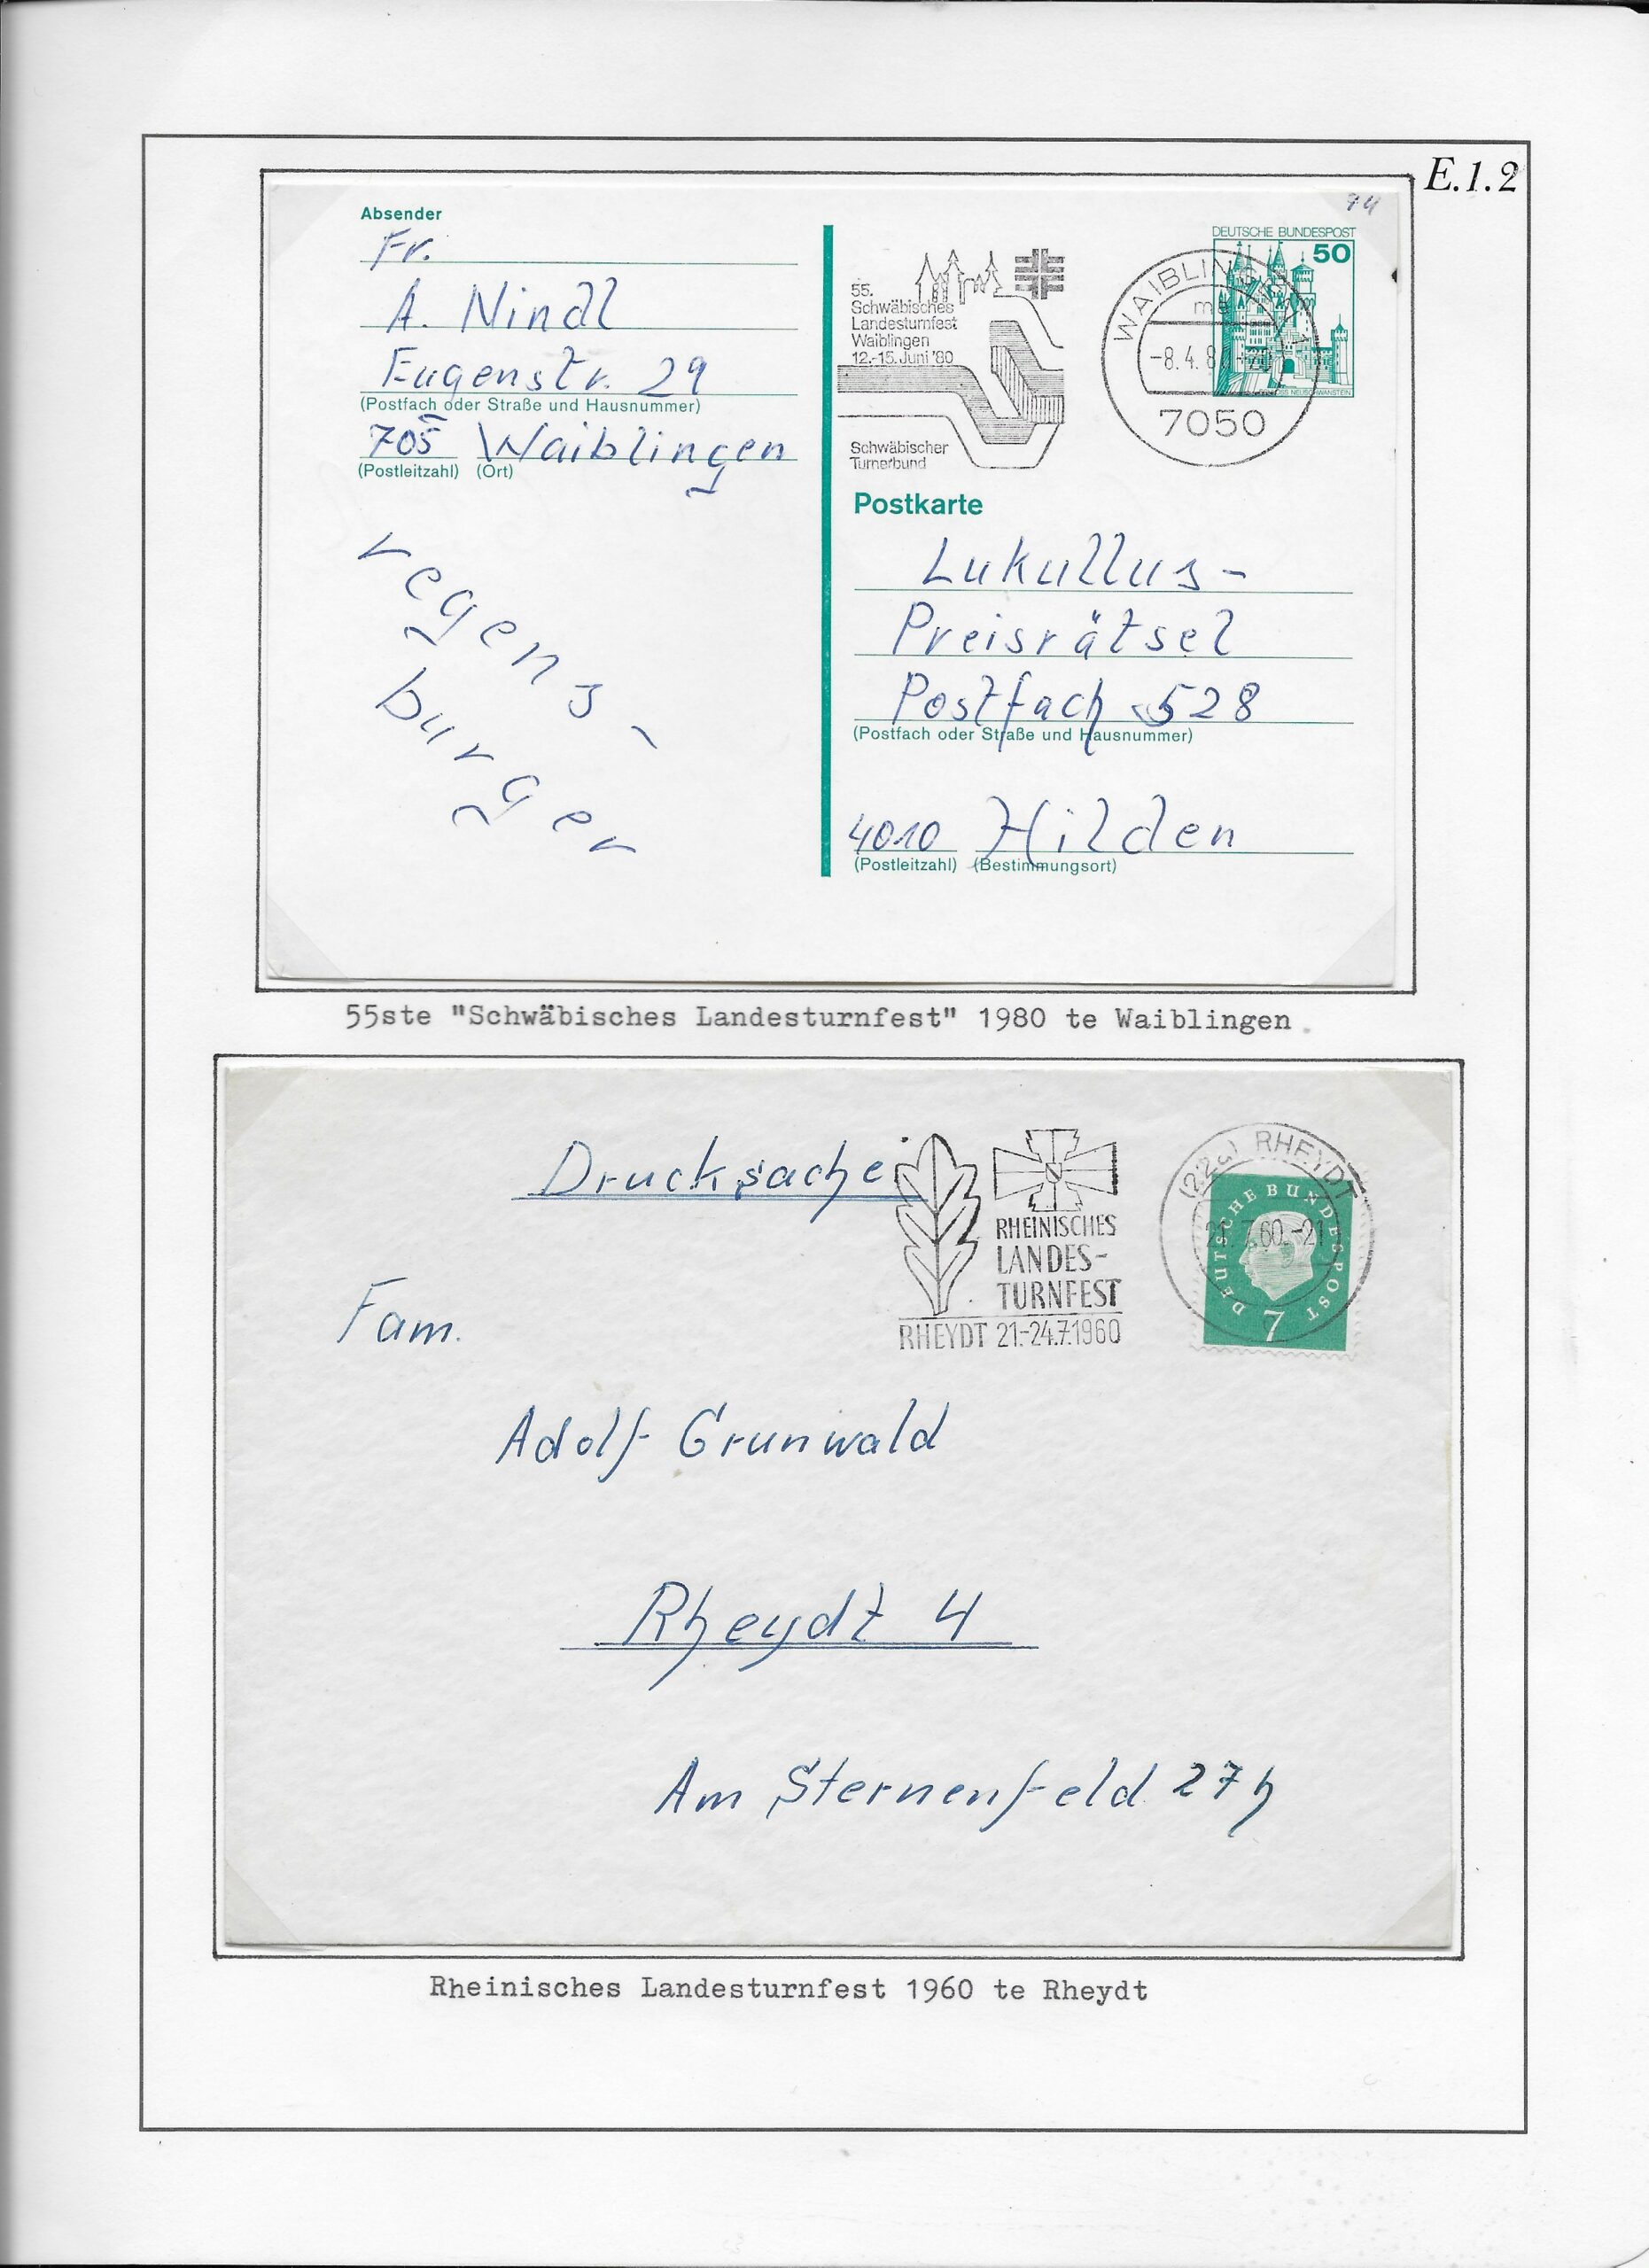 E.1.2
94
Absender
Fr.
A. Nindl
Eugenstr. 29
(Postfach oder Straße und Hausnummer)
705 Waiblingen
(Postleitzahl) (Ort)
regens-
burger
55.
Schwäbisches
Landesturnfest
Waiblingen
12.-15. Juni '80
Schwäbischer
Turnerbund
WAIBLINGEN
-8.4.80
7050
DEUTSCHE BUNDESPOST
50
Postkarte
Lukullus-
Preisrätsel
Postfach 528
(Postfach oder Straße und Hausnummer)
4010 Hilden
(Postleitzahl) (Bestimmungsort)
55ste "Schwäbisches Landesturnfest" 1980 te Waiblingen.
Drucksache
RHEINISCHES
LANDES-
TURNFEST
RHEYDT 21.-24.7.1960
(22a) RHEYDT
21.7.60.-21
DEUTSCHE BUNDESPOST
7
Fam.
Adolf Grunwald
Rheydt 4
Am Sternenfeld 27h
Rheinisches Landesturnfest 1960 te Rheydt